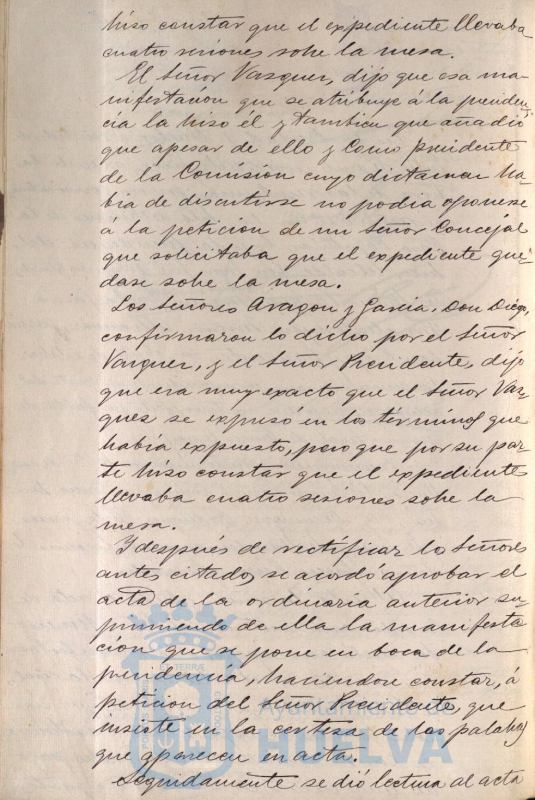 hiso constar que el expediente llevaba
cuatro sesiones sobre la mesa.
El Señor Vazquez, dijo que esa ma-
nifestación que se atribuye á la presiden-
cia la hizo él y tambien que añadió
que apesar de ello y como presidente
de la Comisión cuyo dictamen ha-
bia de discutirse no podia oponerse
á la peticion de un Señor Concejal
que solicitaba que el expediente que-
dase sobre la mesa.
Los Señores Aragon y Garcia, Don Diego,
confirmaron lo dicho por el Señor
Vazquez, y el Señor Presidente, dijo
que era muy exacto que el Señor Vaz-
quez se expresó en los términos que
había expuesto, pero que por su par-
te hiso constar que el expediente
llevaba cuatro sesiones sobre la
mesa.
Y después de rectificar los Señores
antes citados, se acordó aprobar el
acta de la ordinaria anterior su-
primiendo de ella la manifesta
cion que se pone en boca de la
presidencia, haciendose constar, á
peticion del Señor Presidente, que
insiste en la certeza de las palabras
que aparecen en acta.
Seguidamente se dió lectura al acta
Ayuntamiento de
HUELVA